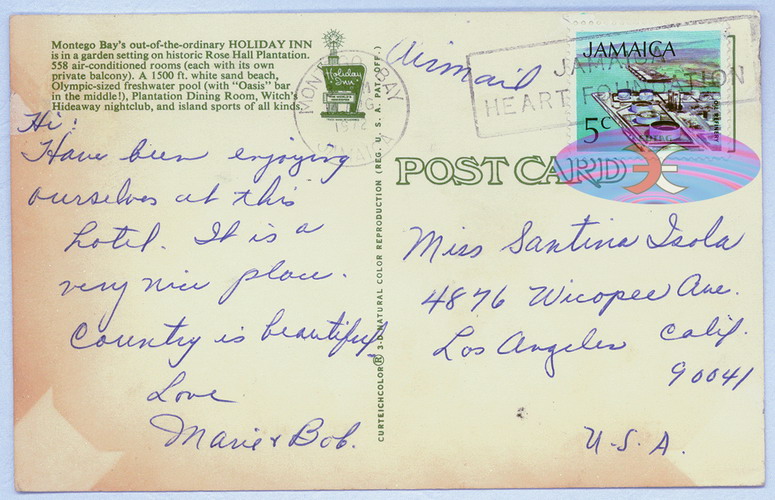 Montego Bay's out-of-the-ordinary HOLIDAY INN
is in a garden setting on historic Rose Hall Plantation.
558 air-conditioned rooms (each with its own
private balcony). A 1500 ft. white sand beach,
Olympic-sized freshwater pool (with "Oasis" bar
in the middle!), Plantation Dining Room, Witch's
Hideaway nightclub, and island sports of all kinds.
Holiday Inn
Hi!
Have been enjoying
ourselves at this
hotel. It is a
very nice place.
Country is beautiful
Love
Marie & Bob.
CURTEICHCOLOR® 3-D NATURAL COLOR REPRODUCTION (REG. U.S.A. PAT. OFF.)
MONTEGO BAY
1972
JAMAICA
Airmail
JAMAICA
HEART FOUNDATION
JAMAICA
5c
OIL REFINERY
POST CARD
Miss Santina Isola
4876 Wicopee Ave.
Los Angeles Calif.
90041
U.S.A.